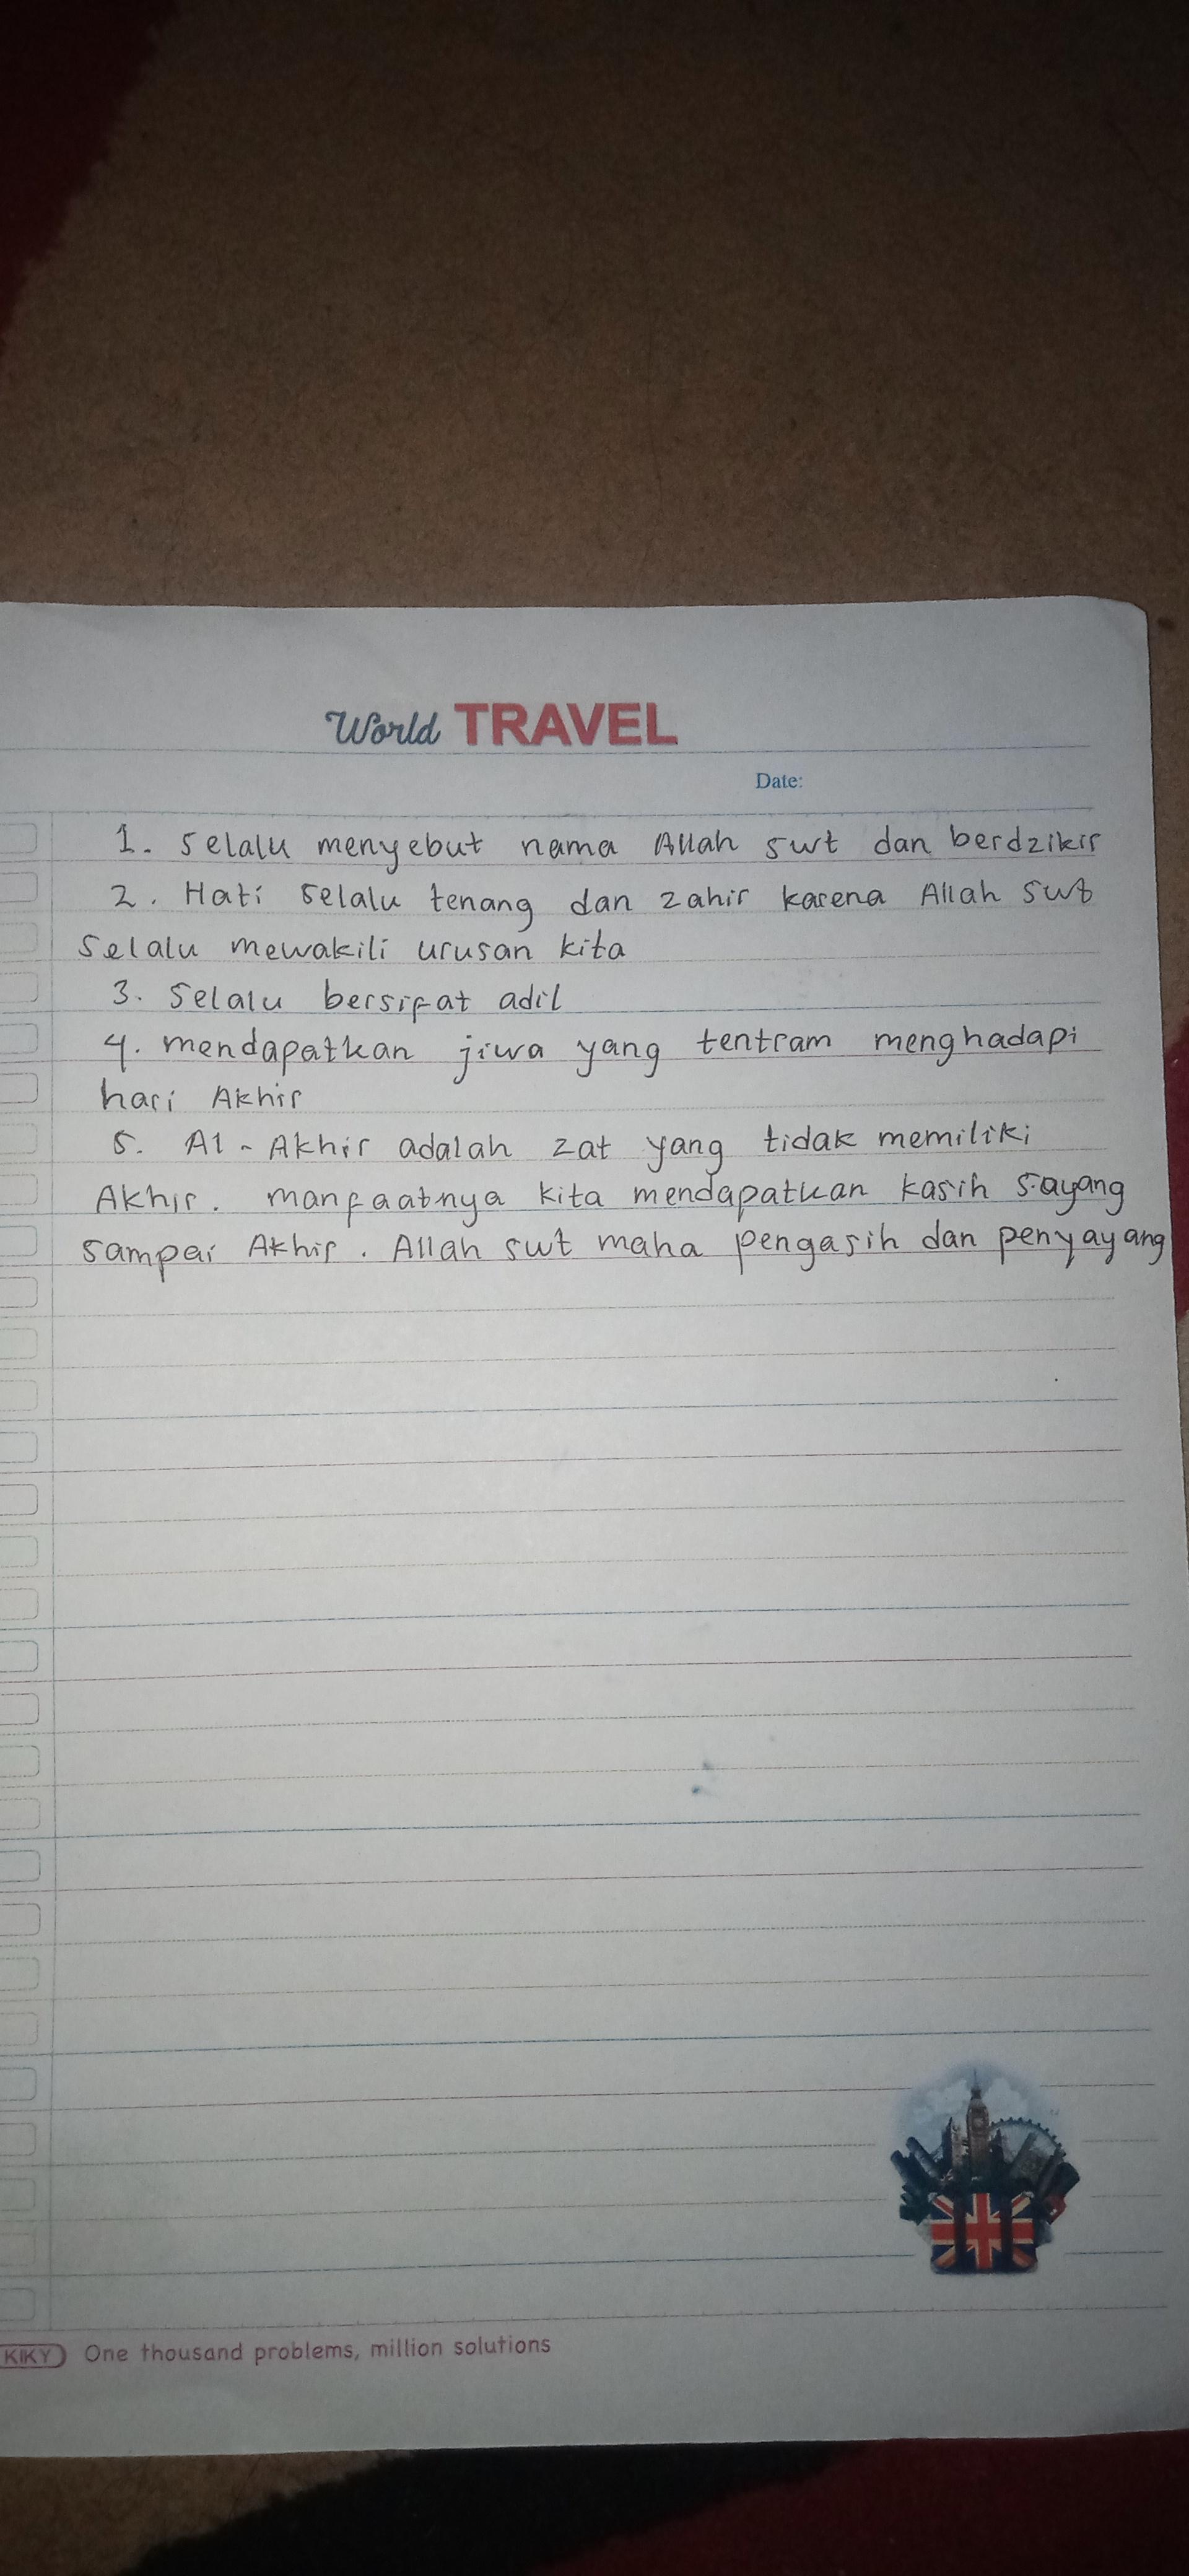 World TRAVEL
Date:
1. Selalu menyebut nama Allah swt dan berdzikir
2. Hati selalu tenang dan zahir karena Allah swt
selalu mewakili urusan kita
3. Selalu bersifat adil
4. mendapatkan jiwa yang tentram menghadapi
hari Akhir
5. Al - Akhir adalah zat yang tidak memiliki
Akhir. manfaatnya kita mendapatkan kasih sayang
sampai Akhir. Allah swt maha pengasih dan penyayang
KIKY One thousand problems, million solutions